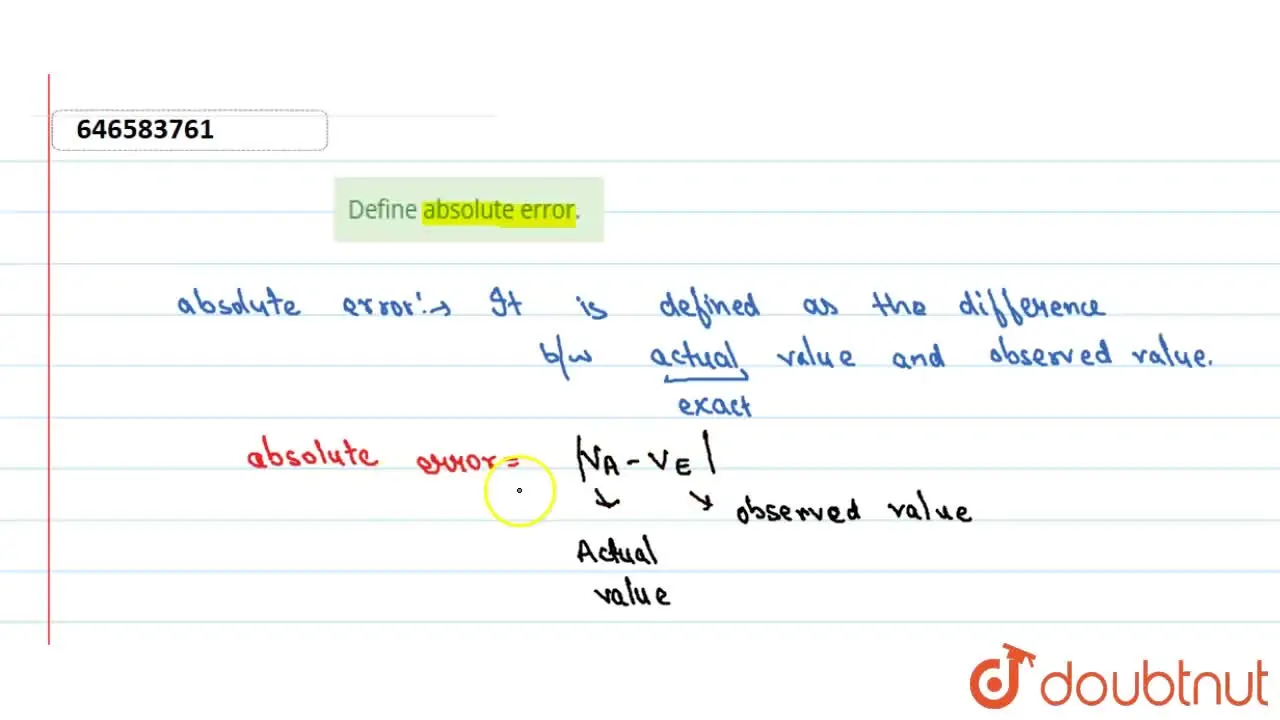 646583761
Define absolute error.
absolute error:→ It is defined as the difference
b/w actual value and observed value.
exact
absolute error= |VA - VE|
observed value
Actual
value
doubtnut